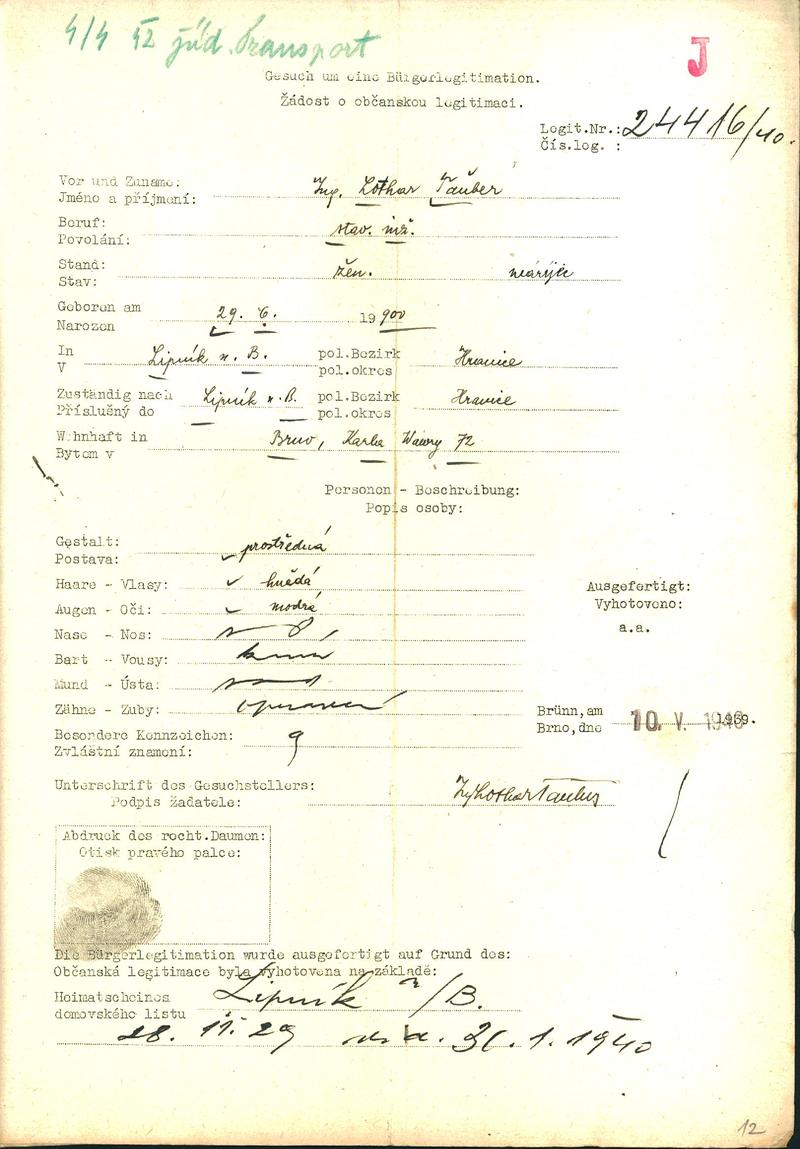 4/4 42 žid. Transport
J
Gesuch um eine Bürgerlegitimation.
Žádost o občanskou legitimaci.
Logit.Nr.: 24416/40.
Čís.log. :
Vor und Zuname:
Jméno a příjmení: Ing. Lothar Tauber
Beruf:
Povolání: stav. inž.
Stand:
Stav: žen. neárijec
Geboren am
Narozen 29. 6. 1900
In
V Lipník n. B. pol.Bezirk
pol.okres Hranice
Zuständig nach
Příslušný do Lipník n. B. pol.Bezirk
pol.okres Hranice
Wohnhaft in
Bytem v Brno, Karla Wawry 72
Personen - Beschreibung:
Popis osoby:
Gestalt:
Postava: prostřední
Haare - Vlasy: hnědá
Augen - Oči: modrá
Nase - Nos:
Bart - Vousy:
Mund - Ústa:
Zähne - Zuby:
Besondere Kennzeichen:
Zvláštní znamení:
Ausgefertigt:
Vyhotoveno:
a.a.
Brünn, am
Brno, dne 10. V. 1940
Unterschrift des Gesuchstellers:
Podpis žadatele: Ing Lothar Tauber
Abdruck des recht.Daumen:
Otisk pravého palce:
Die Bürgerlegitimation wurde ausgefertigt auf Grund des:
Občanská legitimace byla vyhotovena na základě:
Heimatscheines
domovského listu Lipník n/B.
28. 11. 29 31. 1. 1940
12